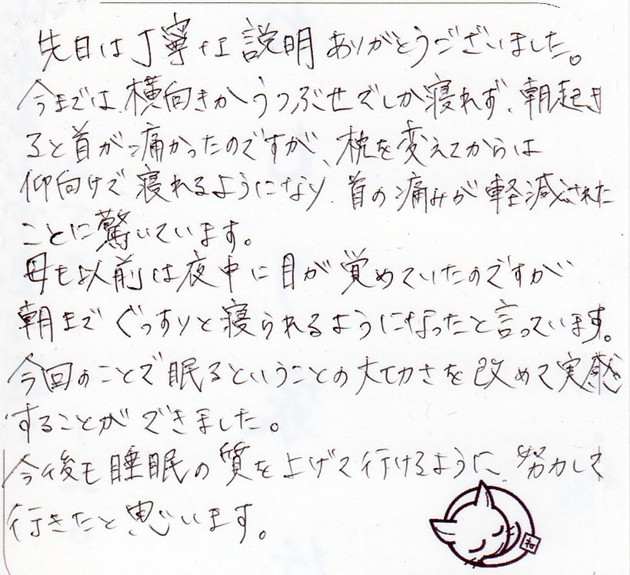 先日は丁寧な説明ありがとうございました。
今までは、横向きかうつぶせでしか寝れず、朝起き
ると首が痛かったのですが、枕を変えてからは
仰向けで寝れるようになり、首の痛みが軽減された
ことに驚いています。
母も以前は夜中に目が覚めていたのですが
朝までぐっすりと寝られるようになったと言っています。
今回のことで眠るということの大切さを改めて実感
することができました。
今後も睡眠の質を上げて行けるように、努力して
行きたと思います。
和